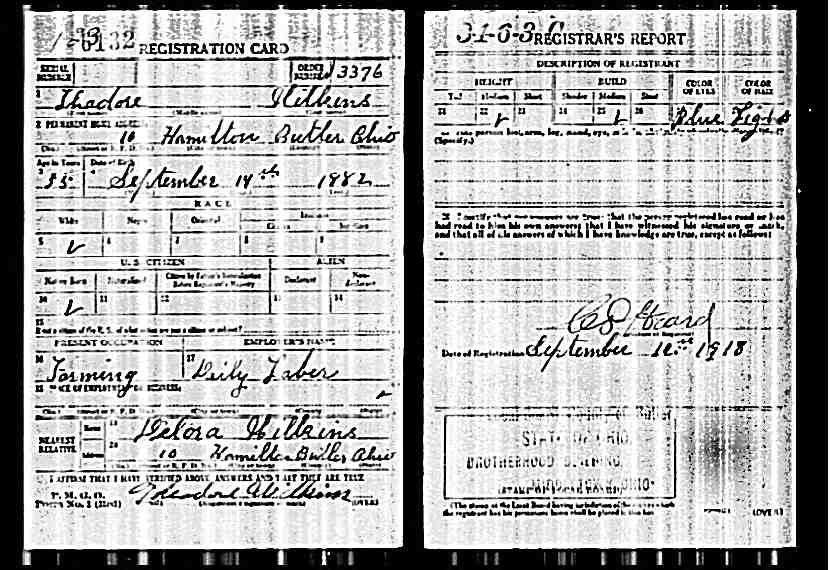 REGISTRATION CARD
SERIAL NUMBER
ORDER NUMBER 3376
1 Thadore Wilkins
2 PERMANENT HOME ADDRESS
10 Hamilton Butler Ohio
Age in Years Date of Birth
3 35 4 September 14th 1882
RACE
White Negro Oriental Indian
5 ✓ 6 7 8 9
U. S. CITIZEN ALIEN
Native Born Naturalized Citizen by Father's Naturalization Before Registrant's Majority Declarant Non-declarant
10 ✓ 11 12 13 14
15
If not a citizen of the U. S. of what nation are you a citizen or subject?
PRESENT OCCUPATION EMPLOYER'S NAME
16 Farming 17
18 PLACE OF EMPLOYMENT OR BUSINESS
NEAREST RELATIVE Name 19 Delora Wilkins
Address 20 10 Hamilton Butler Ohio
I AFFIRM THAT I HAVE VERIFIED ABOVE ANSWERS AND THAT THEY ARE TRUE
Theodore Wilkins
(OVER)
REGISTRAR'S REPORT
DESCRIPTION OF REGISTRANT
HEIGHT BUILD COLOR OF EYES COLOR OF HAIR
Tall Medium Short Slender Medium Stout
21 22 ✓ 23 24 25 ✓ 26 Blue Light
(Specify.)
30 I certify that my answers are true; that the person registered has read or has
had read to him his own answers; that I have witnessed his signature or mark,
and that all of his answers of which I have knowledge are true, except as follows:
Date of Registration September 12th 1918
STATE OF OHIO,
BROTHERHOOD BUILDING,
(STAMP OF LOCAL BOARD)
(The stamp of the Local Board having jurisdiction of the area in which
the registrant has his permanent home shall be placed in this box
(OVER)